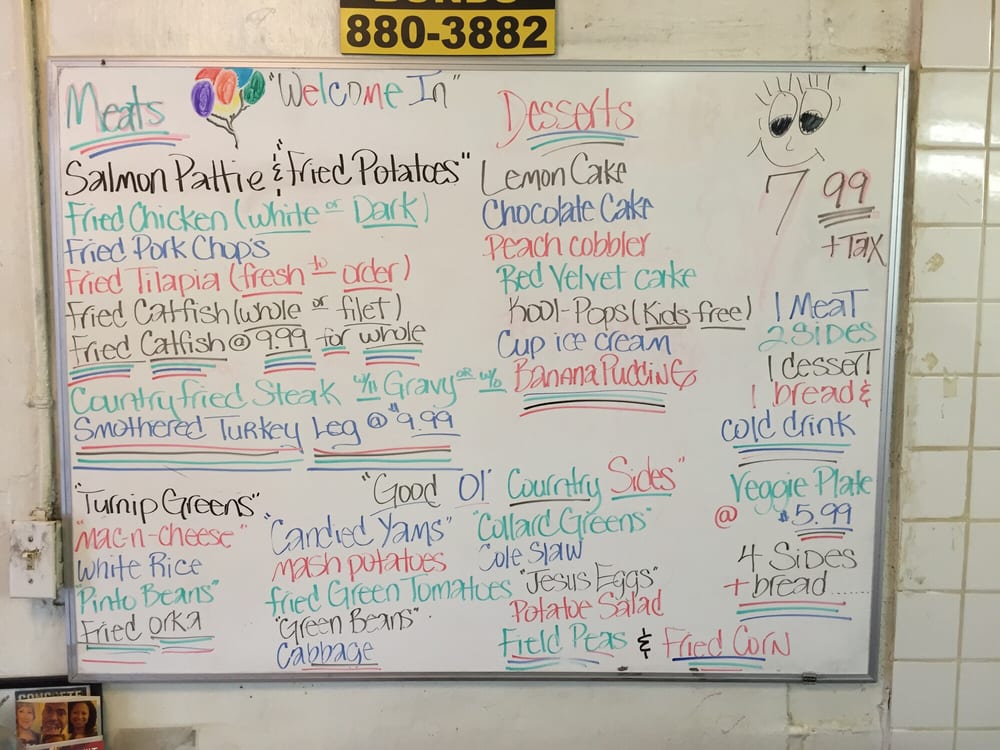 BONDS
880-3882
Meats
"Welcome In"
Salmon Pattie & "Fried Potatoes"
Fried Chicken (white or Dark)
Fried Pork Chop's
Fried Tilapia (fresh to order)
Fried Catfish (whole or filet)
Fried Catfish @ 9.99 for whole
Country fried Steak w/ Gravy or w/o
Smothered Turkey Leg @ $9.99
Desserts
Lemon Cake
Chocolate Cake
Peach cobbler
Red Velvet cake
Kool-Pops (Kids free)
Cup ice cream
Banana Pudding
7 99
+ Tax
1 Meat
2 Sides
1 dessert
1 bread &
cold drink
Veggie Plate
@ $5.99
4 Sides
+ bread......
"Good Ol' Country Sides"
"Turnip Greens"
"Mac-n-cheese"
White Rice
"Pinto Beans"
Fried orka
"Candied Yams"
Mash potatoes
fried Green Tomatoes
"Green Beans"
Cabbage
"Collard Greens"
Cole Slaw
"Jesus Eggs"
Potatoe Salad
Field Peas & Fried Corn
CONCRETE